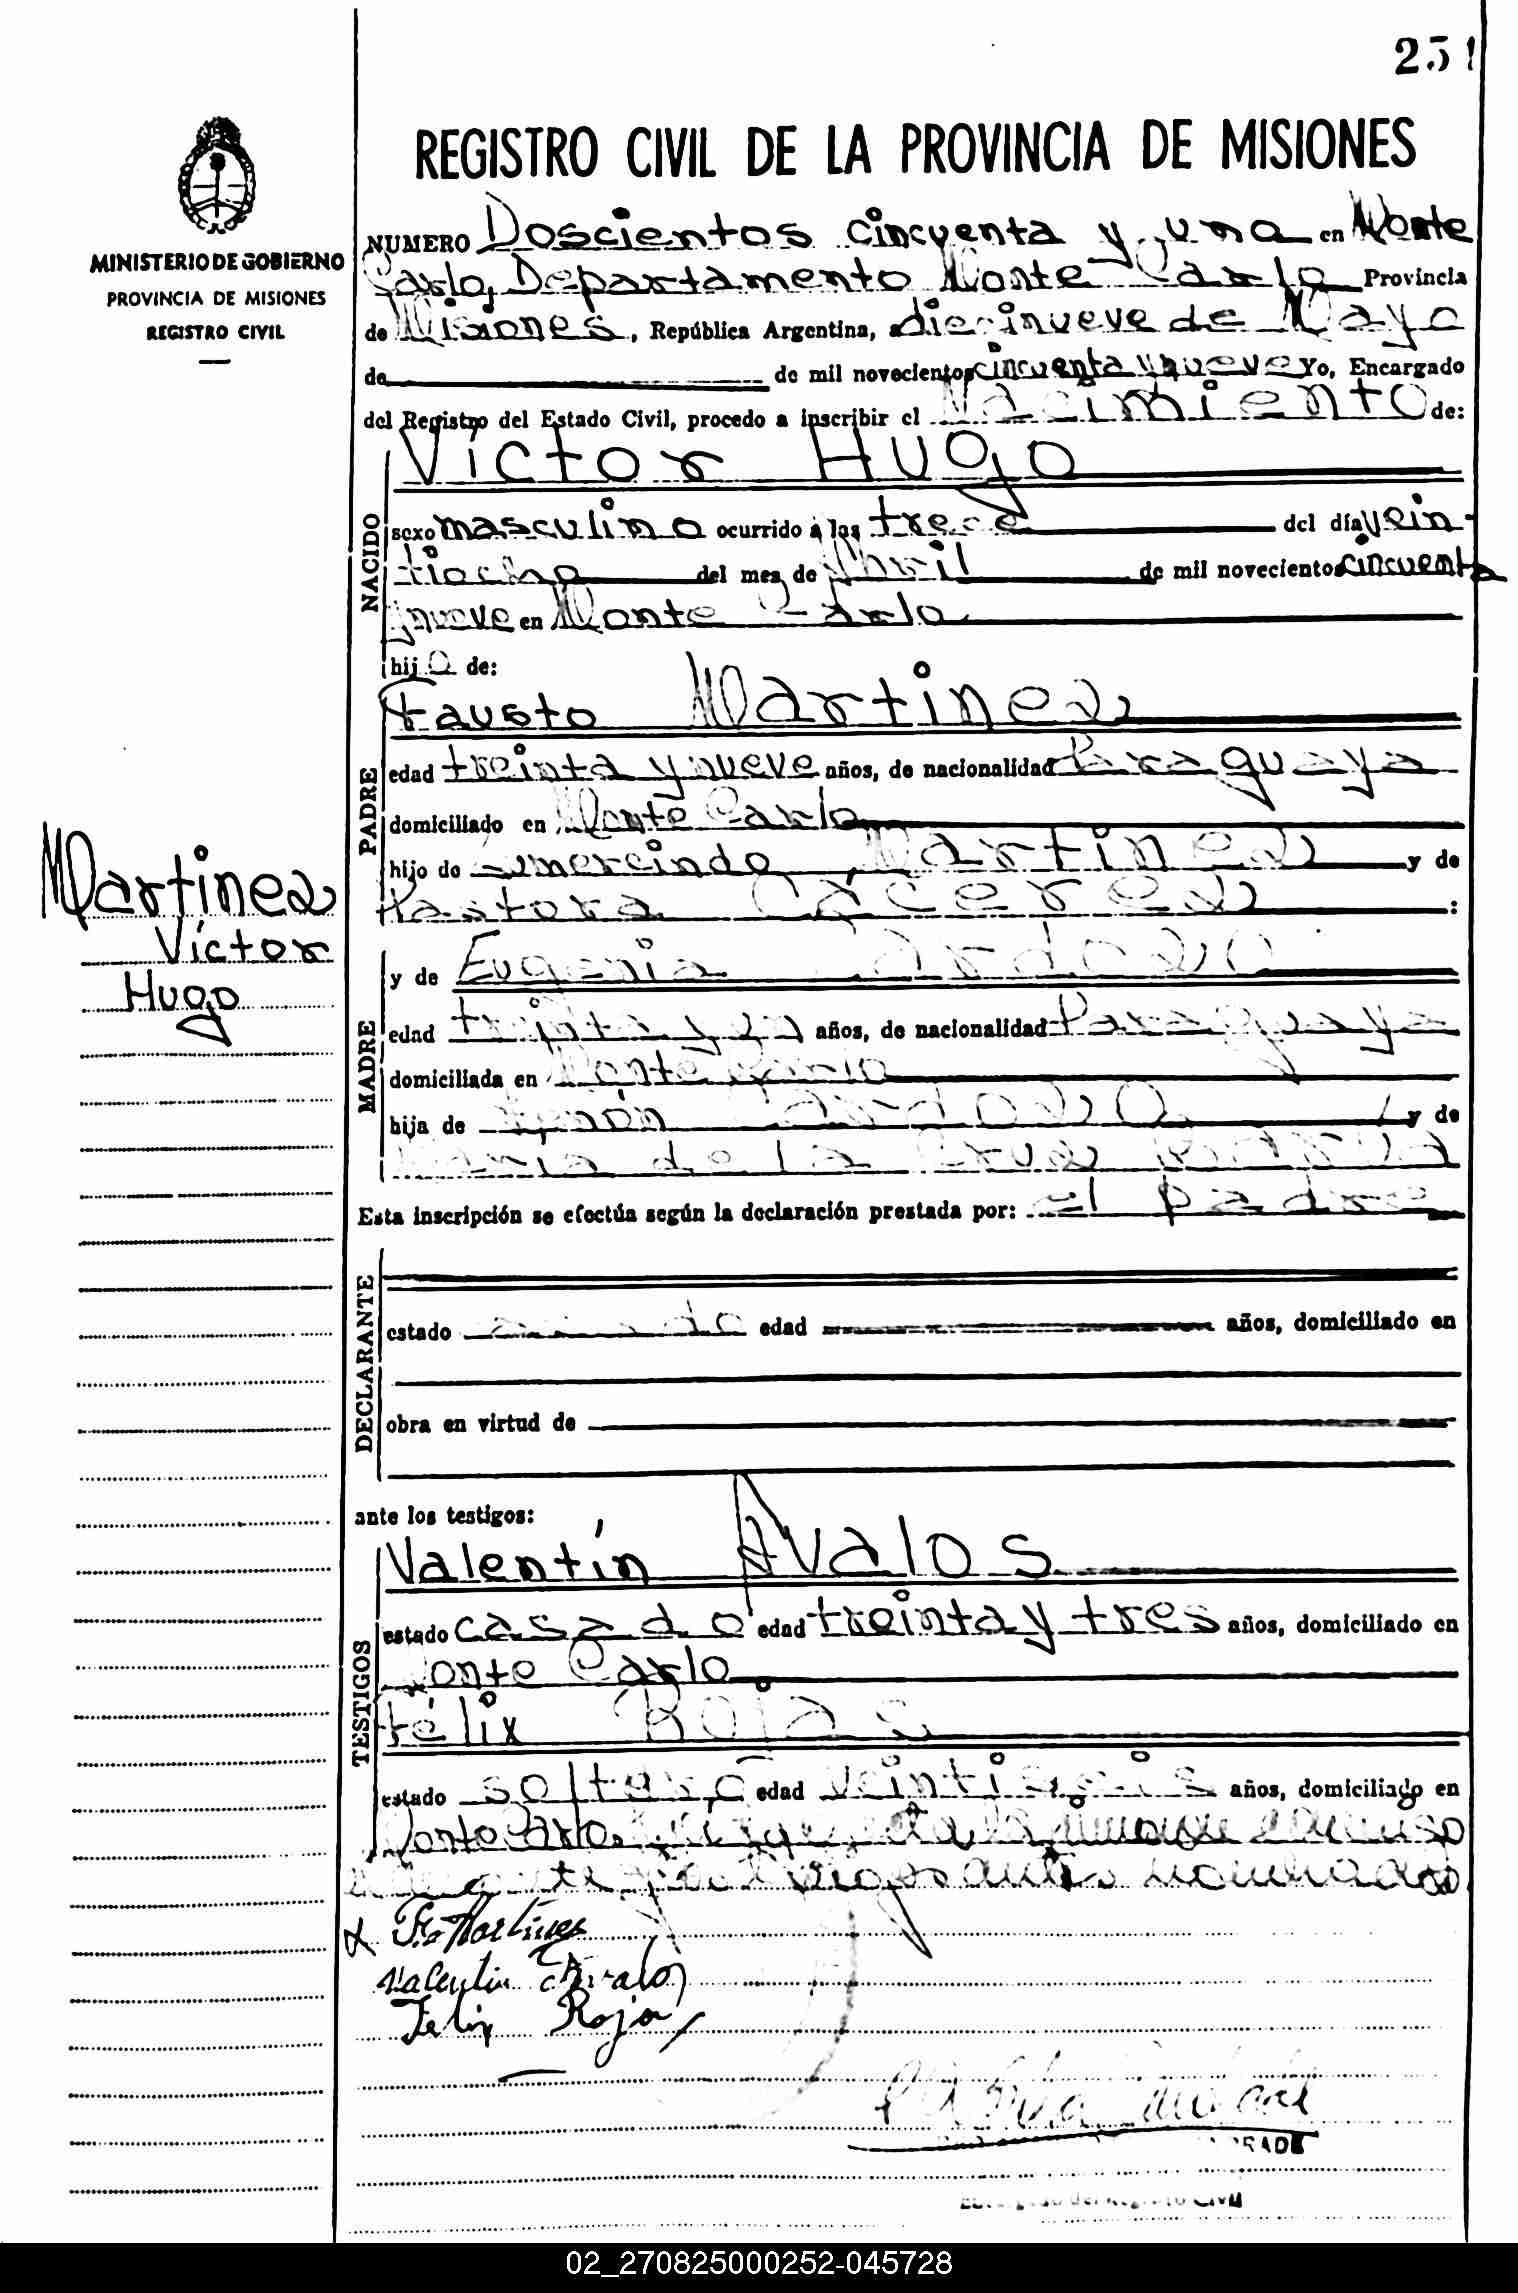 251
REGISTRO CIVIL DE LA PROVINCIA DE MISIONES
MINISTERIO DE GOBIERNO
PROVINCIA DE MISIONES
REGISTRO CIVIL
NUMERO Doscientos cincuenta y una en Monte
Carlo, Departamento Monte Carlo Provincia
de Misiones, República Argentina, a diecinueve de Mayo
de de mil novecientos cincuenta y nueve Yo, Encargado
del Registro del Estado Civil, procedo a inscribir el Nacimiento de:
Víctor Hugo
NACIDO
sexo masculino ocurrido a las trece del día vein-
tiocho del mes de Abril de mil novecientos cincuenta
y nueve en Monte Carlo
hijo de:
Fausto Martinez
PADRE
edad treinta y nueve años, de nacionalidad Paraguaya
domiciliado en Monte Carlo
hijo de Gumercindo Martinez y de
Pastora Cáceres :
Martinez
Víctor
Hugo
y de Eugenia Cardozo
MADRE
edad treinta y un años, de nacionalidad Paraguaya
domiciliada en Monte Carlo
hija de Cardozo y de
María de la Cruz
Esta inscripción se efectúa según la declaración prestada por: el padre
DECLARANTE
estado edad años, domiciliado en
obra en virtud de
ante los testigos:
Valentín Avalos
TESTIGOS
estado casado edad treinta y tres años, domiciliado en
Monte Carlo
Félix Rojas
estado soltero edad veintiseis años, domiciliado en
Monte Carlo
testigos antes nombrados
Fto Martinez
Valentin Avalos
Felix Rojas
Encargado del Registro Civil
02_270825000252-045728